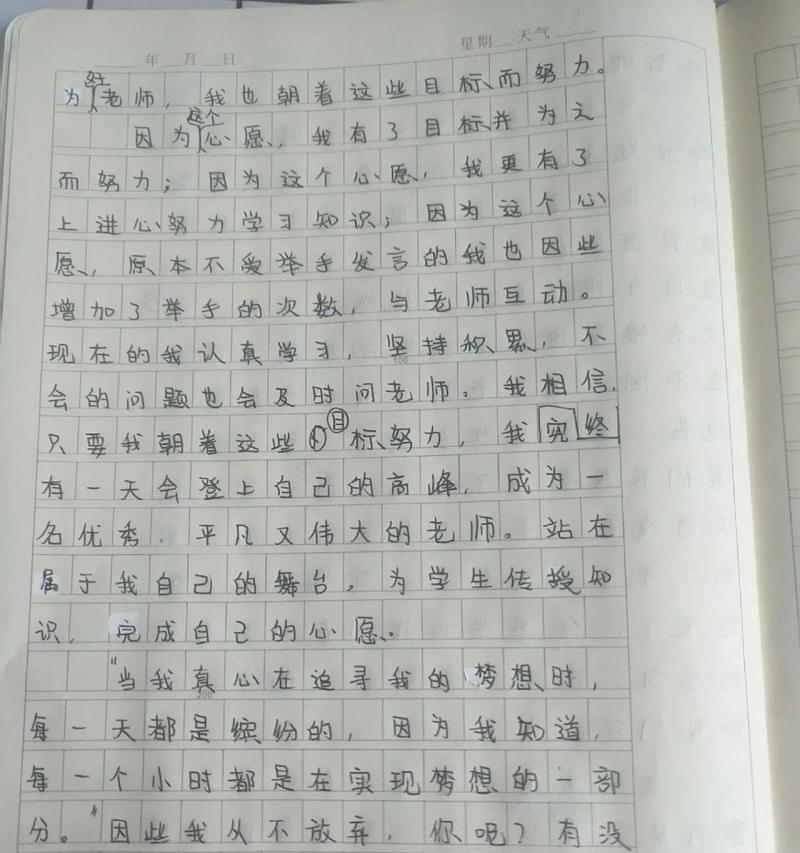 年 月 日 星期 天气
为好老师，我也朝着这些目标而努力。
因为这个心愿，我有了目标并为之
而努力；因为这个心愿，我更有了
上进心努力学习知识；因为这个心
愿，原本不爱举手发言的我也因些
增加了举手的次数，与老师互动。
现在的我认真学习，坚持积累，不
100
会的问题也会及时问老师。我相信，
只要我朝着这些目标努力，我究终
有一天会登上自己的高峰，成为一
名优秀，平凡又伟大的老师。站在
属于我自己的舞台，为学生传授知
识，完成自己的心愿.
“当我真心在追寻我的梦想时，
200
每一天都是缤纷的，因为我知道，
每一个小时都是在实现梦想的一部
分。”因些我从不放弃，你呢？有没